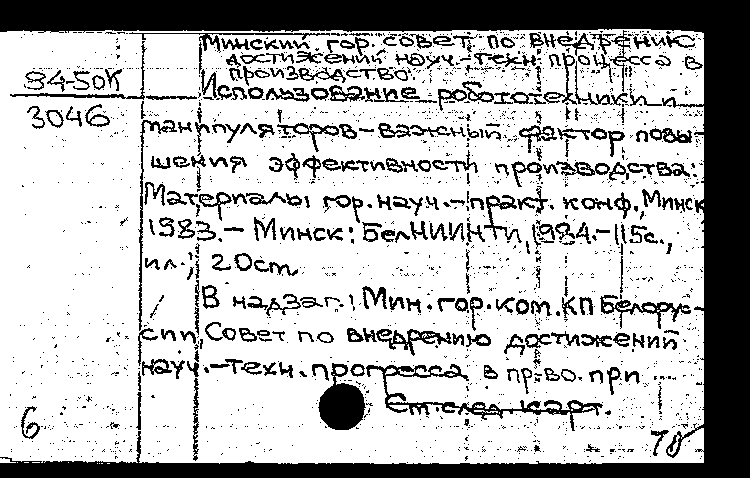 Минский гор. совет по внедрению
достижений науч.-техн. процесса в
производство.
84-50К
Использование робототехники и
3046
манипуляторов-важный фактор повы-
шения эффективности производства:
Материалы гор. науч.-практ. конф., Минск
1983.- Минск: БелНИИНТИ, 1984.-115с.,
ил.; 20см
В надзаг.: Мин. гор. ком. КП Белорус-
сии, Совет по внедрению достижений
науч.-техн. прогресса в пр-во. при ...
См. след. карт.
6